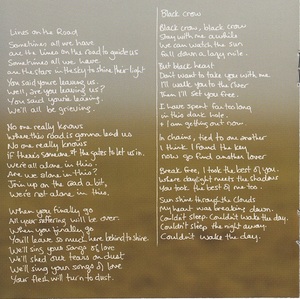 Lines on the Road
Sometimes all we have
are the lines on the road to guide us
Sometimes all we have
are the stars in the sky to shine their light
You said you're leaving us.
Well, are you leaving us?
You said you're leaving.
We'll all be grieving.
No one really knows
When this road is gonna lead us
No one really knows
If there's someone at the gates to let us in.
We're all alone in this.
Are we alone in this?
Join up on the road a bit,
We're not alone in this.
When you finally go
All your suffering will be over.
When you finally go
You'll leave so much here behind to shine.
We'll sing your songs of love
We'll shed our tears on dust
We'll sing your songs of love
Your flesh will turn to dust.
Black crow
Black crow, black crow
Stay with me awhile
We can watch the sun
Fall down a lazy mile.
But black heart
Don't want to take you with me
I'll walk you to the river
Then I'll set you free.
I have spent far too long
in this dark hole
I am getting out now.
In chains, tied to one another
I think I found the key
now go find another lover
Break free, I took the best of you.
Where daylight meets the shadows
You took the best of me too.
Sun shine through the clouds
My heart was breaking down.
Couldn't sleep. Couldn't wake the day.
Couldn't sleep the night away.
Couldn't wake the day.